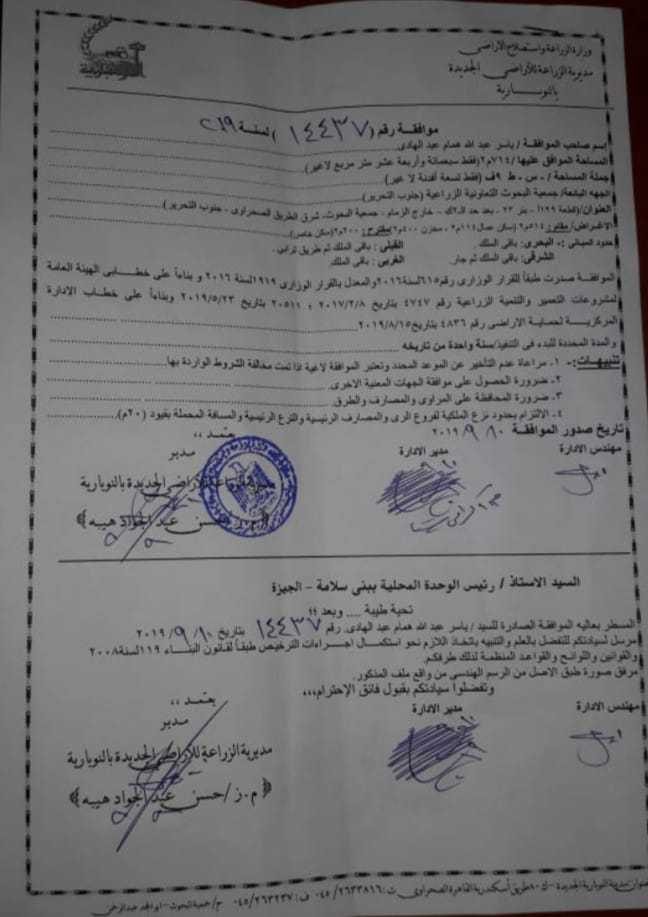 وزارة الزراعة واستصلاح الاراضى
مديرية الزراعة للأراضى الجديدة
بالنوبارية
موافقة رقم (١٤٤٣٧) لسنة ٢٠١٩
إسم صاحب الموافقة / ياسر عبد الله همام عبد الهادى
المساحة الموافق عليها / ٧١٤م٢ (فقط سبعمائة وأربعة عشر متر مربع لاغير)
جملة المساحة / - س - ط ٩ف (فقط تسعة أفدنة لا غير)
الجهه البائعة / جمعية البحوث التعاونية الزراعية (جنوب التحرير)
العنوان / (قطعة ١٢٩ - بئر ٢٣ - بعد حد الـ٢ك - خارج الزمام - جمعية البحوث - شرق الطريق الصحراوى - جنوب التحرير)
الاغراض / مقنن: ٥١٤م٢ (سكن عمال ١١٤م٢ - مخزن ٤٠٠م٢) مقترح: ٢٠٠م٢ (سكن خاص)
حدود المبانى :- البحرى : باقى الملك. القبلى : باقى الملك ثم طريق ترابي.
الشرقى : باقى الملك ثم جار. الغربى : باقى الملك.
الموافقة صدرت طبقاً للقرار الوزارى رقم ٦١٥ لسنة ٢٠١٦ والمعدل بالقرار الوزارى ١٩١٩ لسنة ٢٠١٦ و بناءاً على خطابى الهيئة العامة
لمشروعات التعمير والتنمية الزراعية رقم ٤٧٤٧ بتاريخ ٢٠١٧/٢/٨ ؛ ٢٠٥١١ بتاريخ ٢٠١٩/٥/٢٣ وبناءاً على خطاب الادارة
المركزية لحماية الاراضى رقم ٤٨٣٦ بتاريخ ٢٠١٩/٨/١٥
والمدة المحددة للبدء فى التنفيذ / سنة واحدة من تاريخه
تنبيهات:- ١- مراعاة عدم التأخير عن الموعد المحدد وتعتبر الموافقة لاغية اذا تمت مخالفة الشروط الواردة بها.
٢- ضرورة الحصول على موافقة الجهات المعنية الاخرى.
٣- ضرورة المحافظة على المراوى والمصارف والطرق.
٤- الالتزام بحدود نزع الملكية لفروع الرى والمصارف الرئيسية والترع الرئيسية والمسافة المحملة بقيود (٢٠م)
تاريخ صدور الموافقة ١٠/٩/٢٠١٩
مهندس الادارة مدير الادارة يعتمد ،،
مدير
مديرية الزراعة للأراضى الجديدة بالنوبارية
(م.ز/حسن عبد الجواد هيبه)
السيد الاستاذ / رئيس الوحدة المحلية ببنى سلامة - الجيزة
تحية طيبة .... وبعد ؛؛
المسطر بعاليه الموافقة الصادرة للسيد / ياسر عبد الله همام عبد الهادى. رقم ١٤٤٣٧ بتاريخ ١٠/٩/٢٠١٩
مرسل لسيادتكم للتفضل بالعلم والتنبيه باتخاذ اللازم نحو استكمال اجراءات الترخيص طبقاً لقانون البناء ١١٩ لسنة ٢٠٠٨
والقوانين واللوائح والقواعد المنظمة لذلك طرفكم.
مرفق صورة طبق الاصل من الرسم الهندسي من واقع ملف المذكور.
وتفضلوا سيادتكم بقبول فائق الإحترام،،،،
مهندس الادارة مدير الادارة يعتمد ،،
مدير
مديرية الزراعة للأراضى الجديدة بالنوبارية
(م.ز/حسن عبد الجواد هيبه)
عنوان مديرية النوبارية الجديدة - ك٨٠ طريق أسكندرية القاهرة الصحراوى ت: ٠٤٥/٢٦٣٣٨١٦ ف: ٠٤٥/٢٦٣٢٣٧